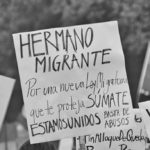 HERMANO
MIGRANTE
Por una nueva Ley Migratoria
que te proteja SÚMATE
ESTAMOS UNIDOS
BASTA DE
ABUSOS